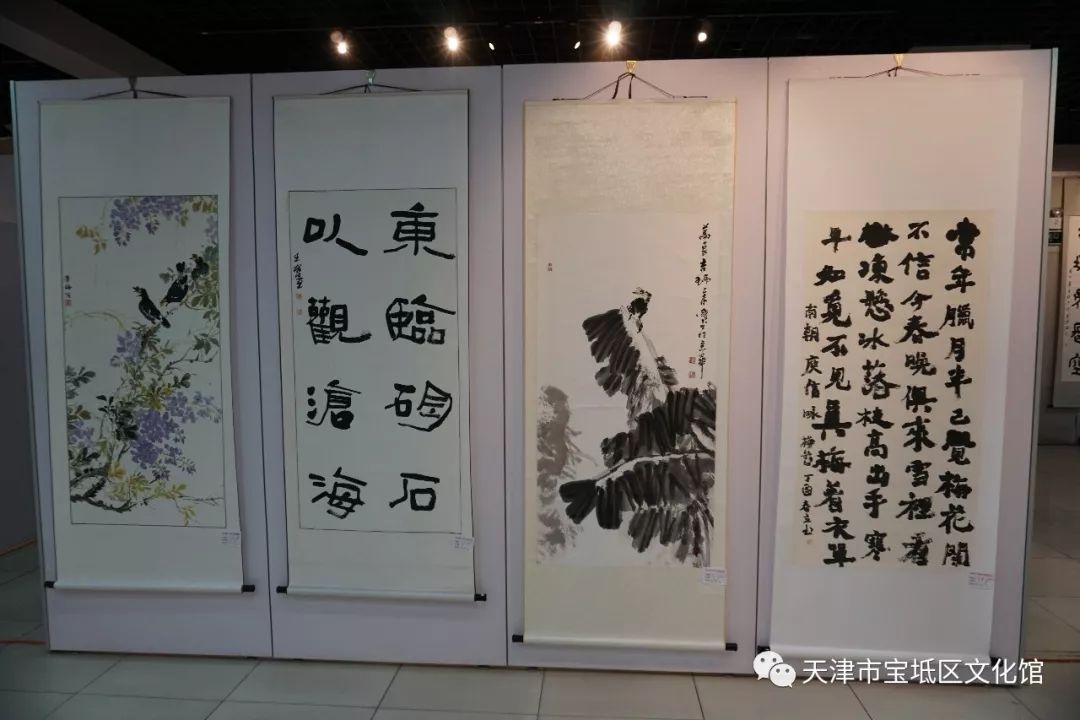 東臨碣石
以觀滄海
常年臘月半已覺梅花闌
不信今春晚俱來雪裡看
樹凍懸冰落枝高出手寒
早知覓不見真梅着衣單
南朝庾信咏梅花丁酉春
天津市宝坻区文化馆